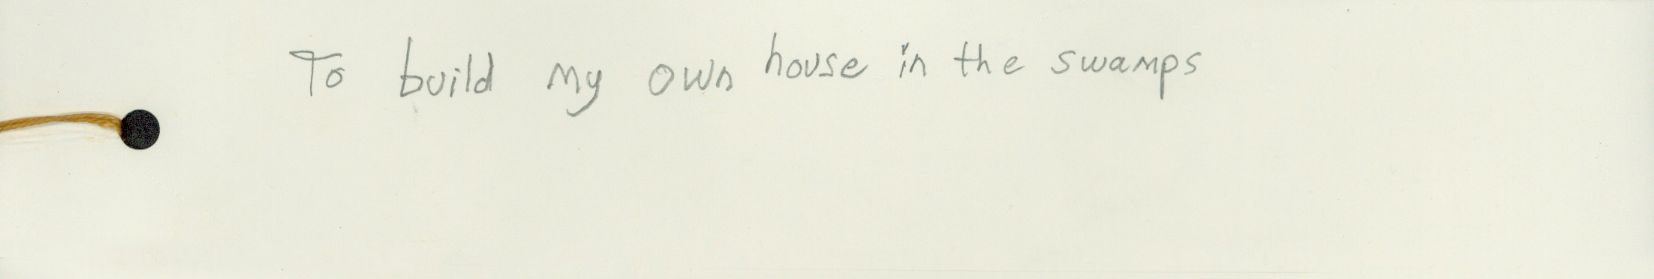 To build my own house in the swamps